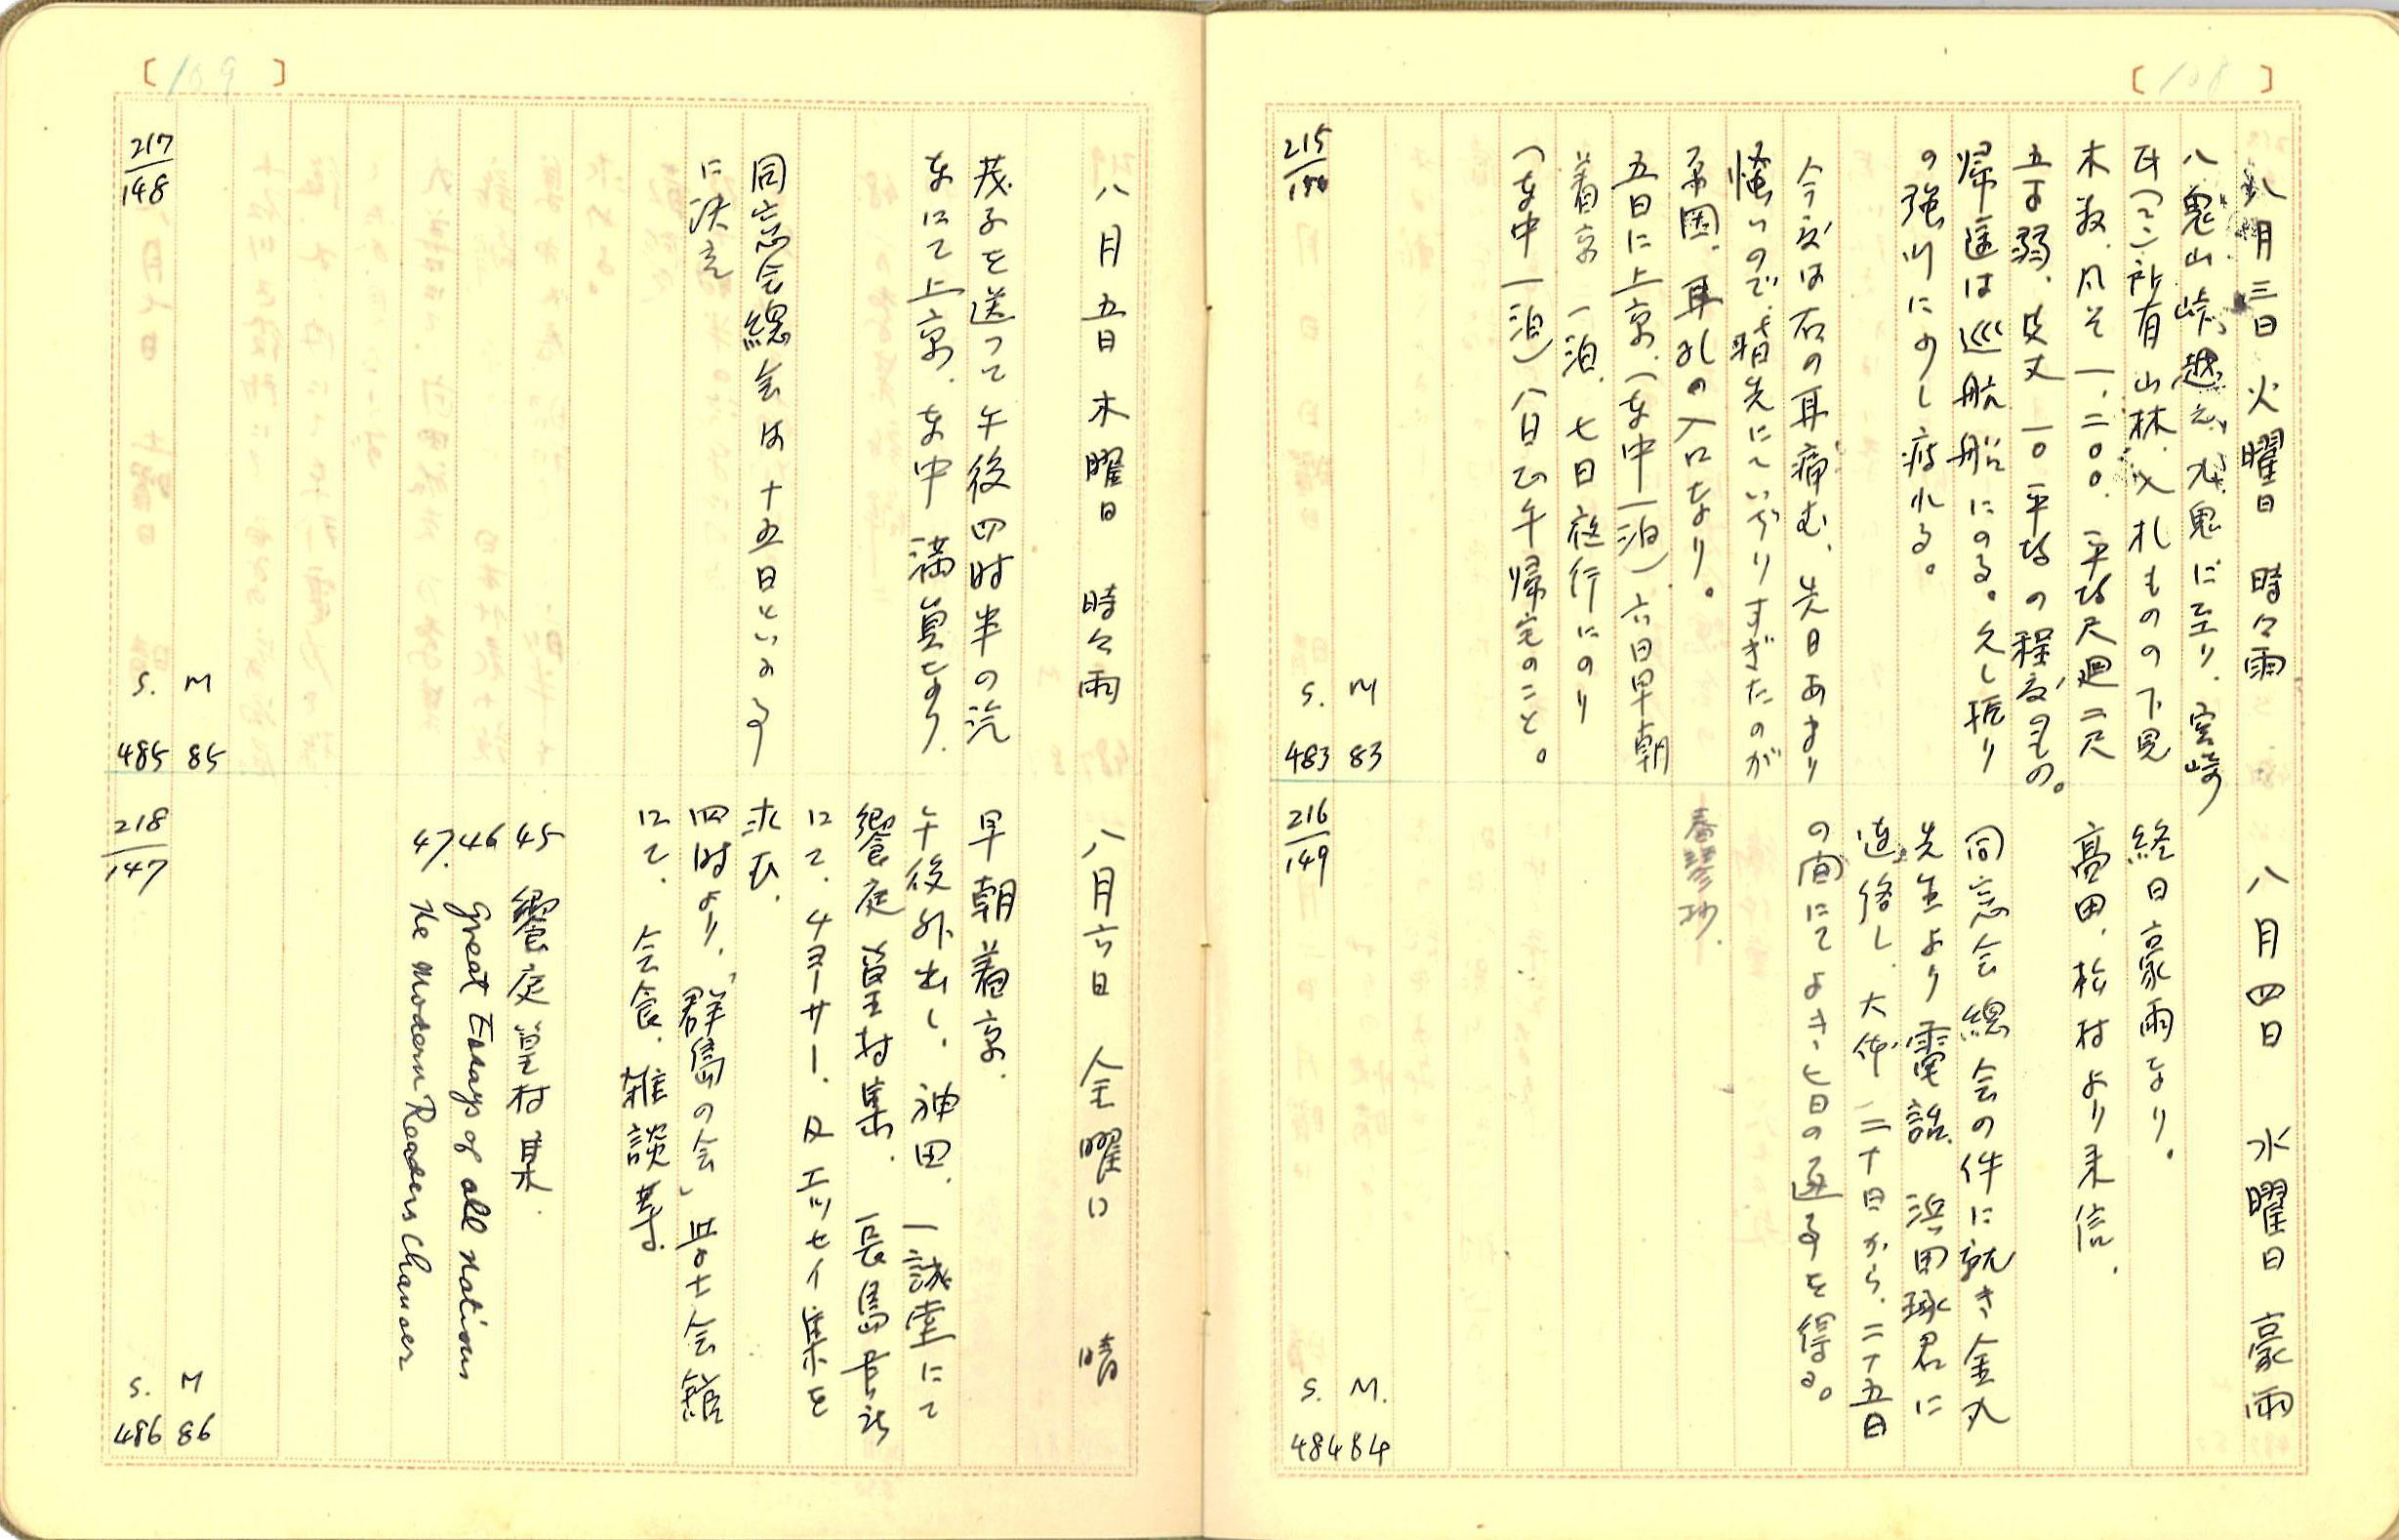 [108]
八月三日 火曜日 時々雨
八鬼山峠越え、九鬼に至り、宮崎
氏所有山林入札ものの下見
木数、凡そ一、二〇〇、平均尺廻二尺
五寸弱、皮丈一〇平均の程度のもの。
帰途は巡航船にのる。久し振り
の強行に少し疲れる。
今度は右の耳痛む、先日あまり
痒いので、指先にていぢりすぎたのが
原因、耳孔の入口なり。
五日に上京、(車中一泊)六日早朝
着京 一泊、七日夜行にのり
(車中一泊)八日正午帰宅のこと。
215
S. M
483 83
八月四日 水曜日 豪雨
終日豪雨なり。
高田、松村より来信、
同窓会總会の件に就き金丸
先生より電話、浜田琢君に
連絡し、大体二十日から、二十五日
の間にてよき、七日の返事を得る。
216
149
S. M.
484 84
[109]
八月五日 木曜日 時々雨
茂子を送って午後四時半の汽
車にて上京、車中満員なり、
同窓会總会は十五日といふ事
に決定
217
148
S. M
485 85
八月六日 金曜日 晴
早朝着京、
午後外出し、神田、一誠堂にて
饗庭篁村集、長島書店
にて、チヨーサー、及エッセイ集を
求む、
四時より、「群島の会」学士会館
にて、会食、雑談等、
45 饗庭篁村集、
46 Great Essays of all nations
47. The Modern Readers Chaucer
218
147
S. M
486 86